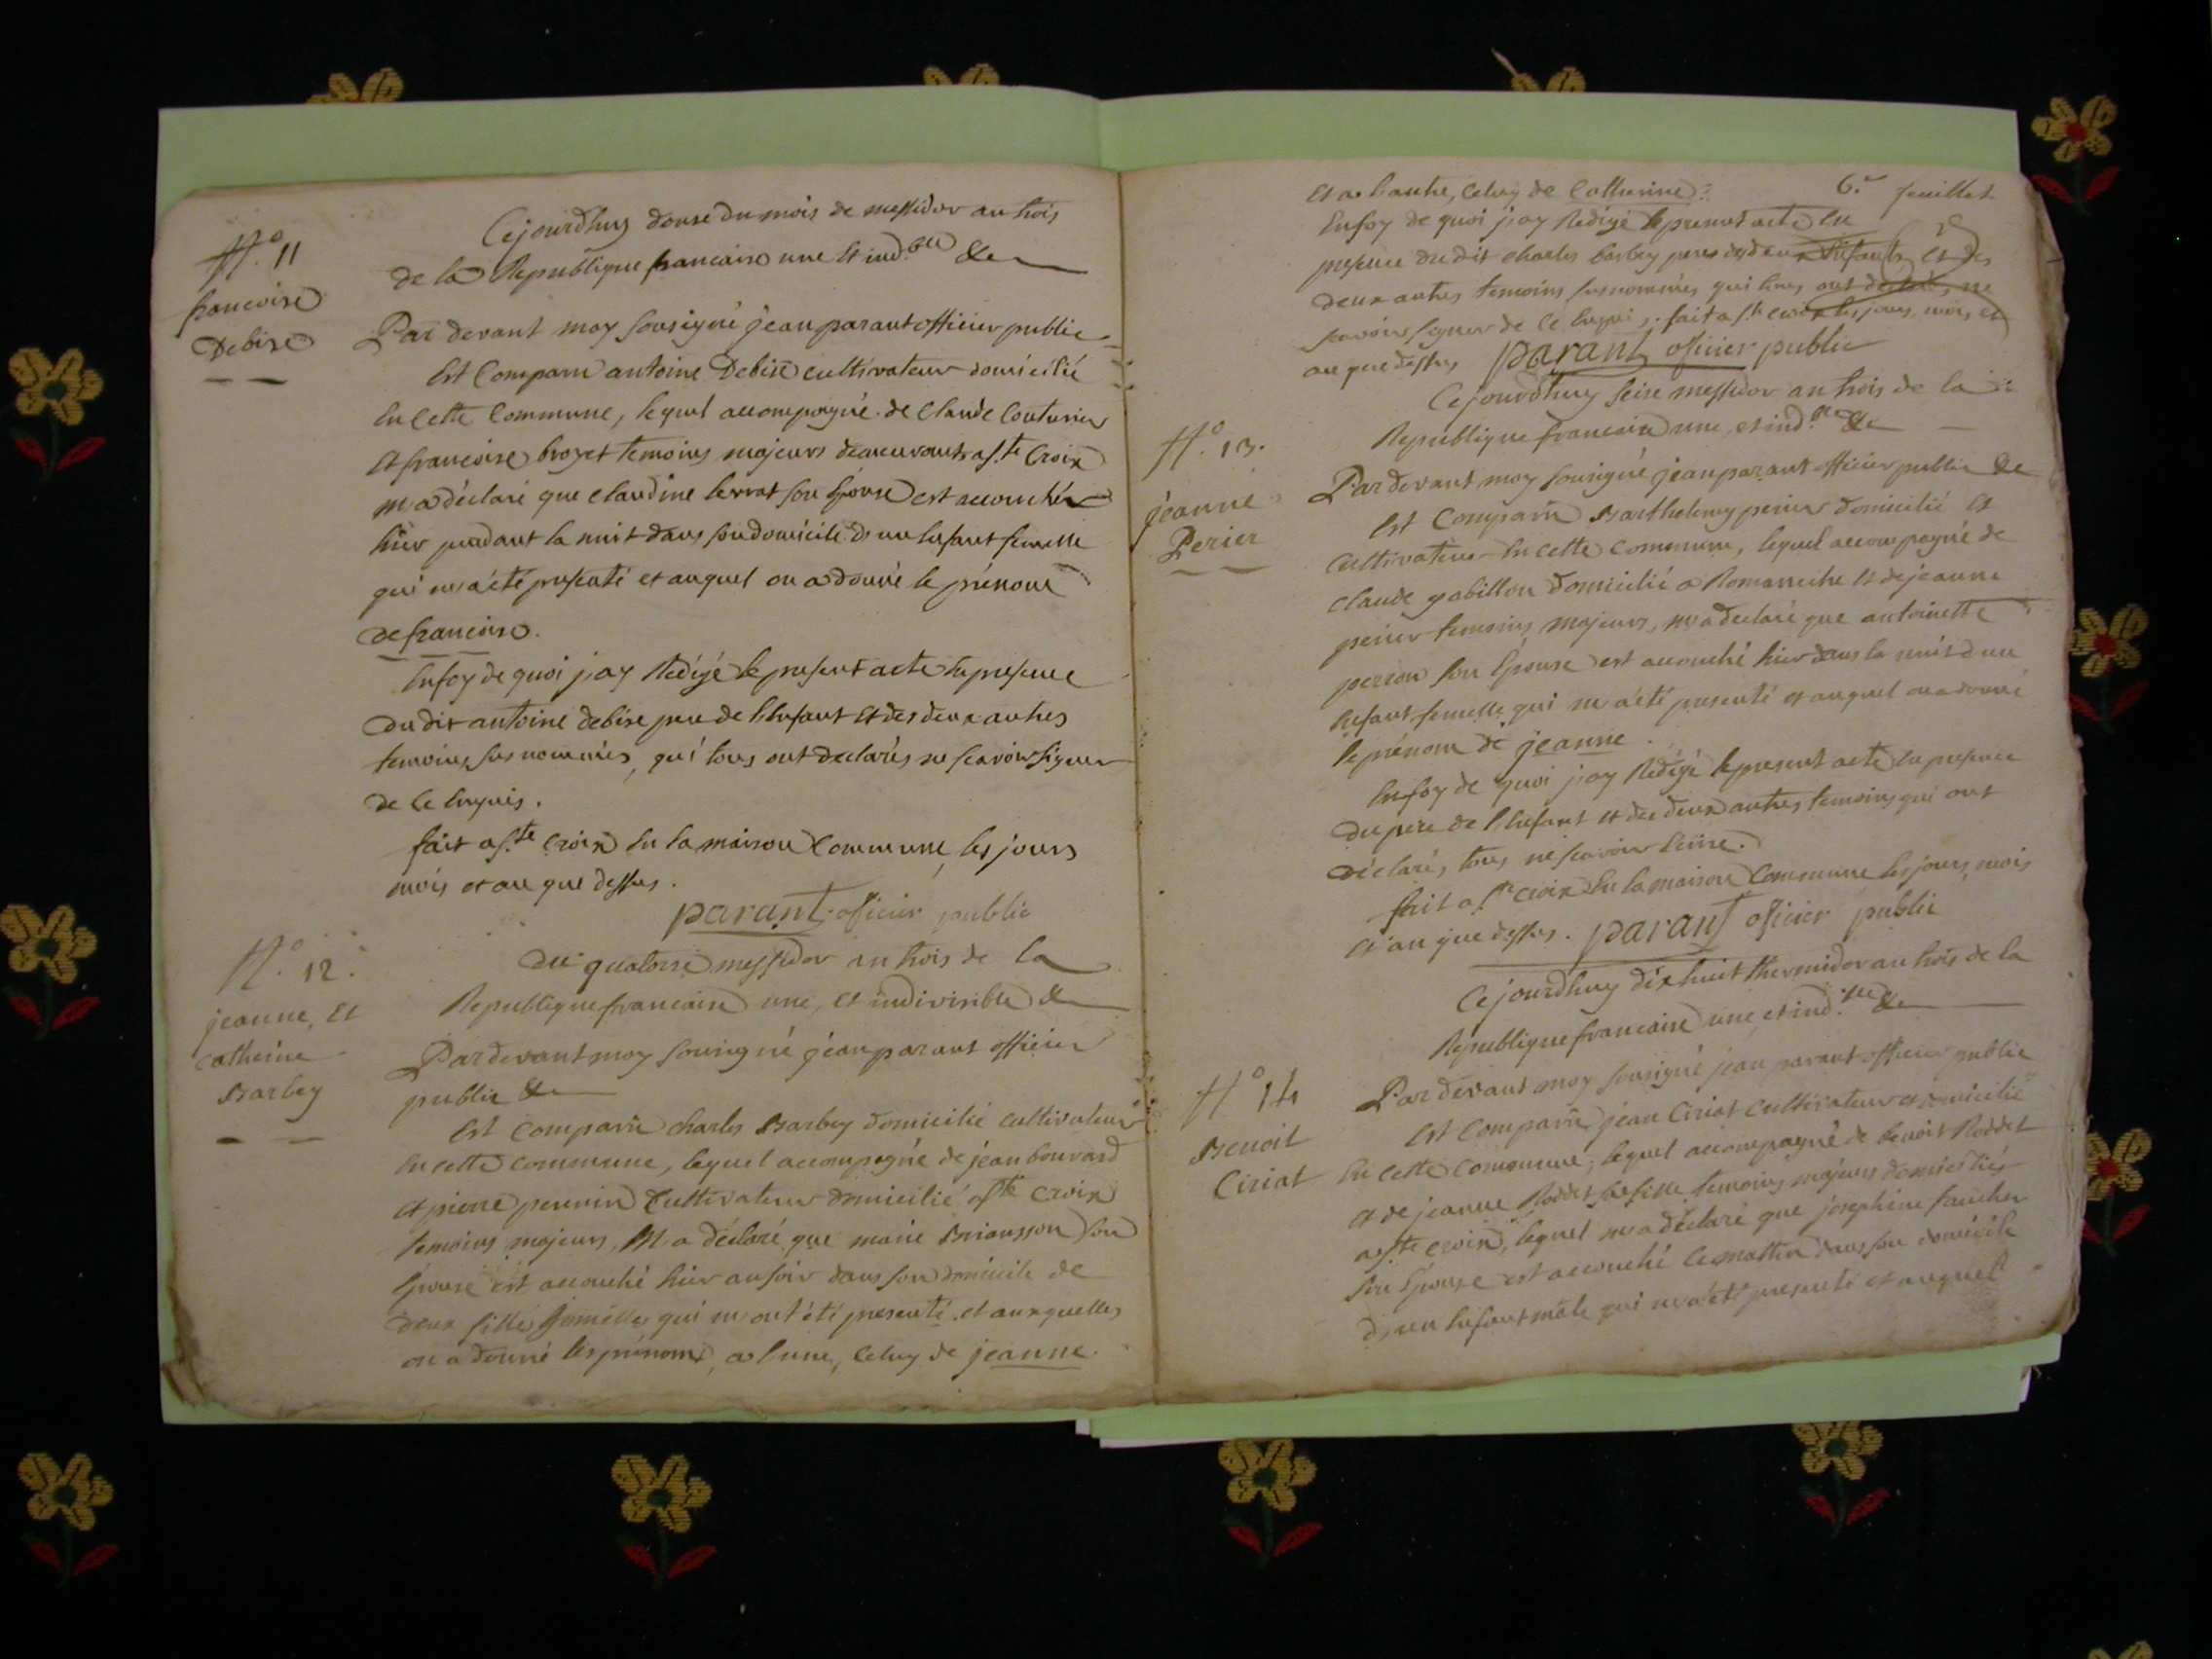 N.o 11
francoise
Debise
Cejourdhuy douse du mois de messidor an trois
de la Republique francaise une Et ind.ble &c
Par devant moy sousigné jean parant officier public
Est Comparu antoine Debise cultivateur domicilié
En Cette Commune, lequel accompagné de Claude Couturier
Et francoise broyet temoins majeurs demeurants a s.te Croix
m'a déclaré que claudine lerrat son Epouse est accouchée
hier pendant la nuit dans son domicile d'un Enfant femelle
qui m'a été presenté et auquel on a donné le prénom
de francoise.
Enfoy de quoi j'ay Redigé le present acte En presence
dudit antoine debise pere de l'Enfant Et des deux autres
temoins sus nommés, qui tous ont declarés ne scavoir signer
de ce Enquis.
fait a s.te Croix En la maison Commune, les jours
mois et an que dessus.
parant officier public
N.o 12.
jeanne, Et
Catherine
Barbey
Du quatorse messidor an trois de la
Republique francaise une, et indivisible &c
Pardevant moy sousigné jean parant officier
public &c
Est Comparu charles Barbey domicilié cultivateur
En cette commune, lequel accompagné de jean bouvard
Et pierre pennin Cultivateur domicilié a s.te Croix
temoins majeurs, M'a déclaré que marie Briansson son
Epouse est accouché hier au soir dans son domicile de
deux filles Jumelles qui m'ont été presenté et auxquelles
on a donné les prénoms, a l'une, Celuy de jeanne.
6.e feuillet
Et a l'autre, Celuy de Catherine.
Enfoy de quoi j'ay Redigé le present acte En
presence dudit charles barbey pere des deux Enfants Et des
deux autres temoins susnommés qui tous ont déclaré, ne
scavoir signer de ce Enquis; fait a s.te croix les jours, mois, et
an que dessus parant officier public
N.o 13.
jeanne
Perier
Cejourdhuy seise messidor an trois de la
Republique francaise une, et ind.ble &c
Pardevant moy sousigné jean parant officier public &c
Est Comparu Barthelemy perier domicilié Et
Cultivateur En cette Commune, lequel accompagné de
Claude gabillon domicilié a Romaneche Et de jeanne
perier temoins majeurs, m'a declaré que antoinette
perron son Epouse est accouché hier dans la nuit d'un
Enfant femelle qui m'a été presenté et auquel on a donné
le prénom de jeanne.
Enfoy de quoi j'ay Redigé le present acte En presence
du pere de l'Enfant et des deux autres temoins qui ont
déclaré, tous ne scavoir Ecrire.
fait a s.te croix En la maison Commune les jours, mois
Et an que dessus. parant officier public
N.o 14
Benoit
Ciriat
Cejourdhuy dix huit thermidor an trois de la
Republique francaise une et ind.ble &c
Par devant moy sousigné jean parant officier public
Est Comparu jean Ciriat Cultivateur et domicilié
En cette Commune, lequel accompagné de benoit Roddet
Et de jeanne Roddet sa fille temoins majeurs domiciliés
a s.te croix, lequel m'a déclaré que josephine faucher
son Epouse est accouché ce mattin dans son domicile
d'un Enfant mâle qui m'a été presenté et auquel